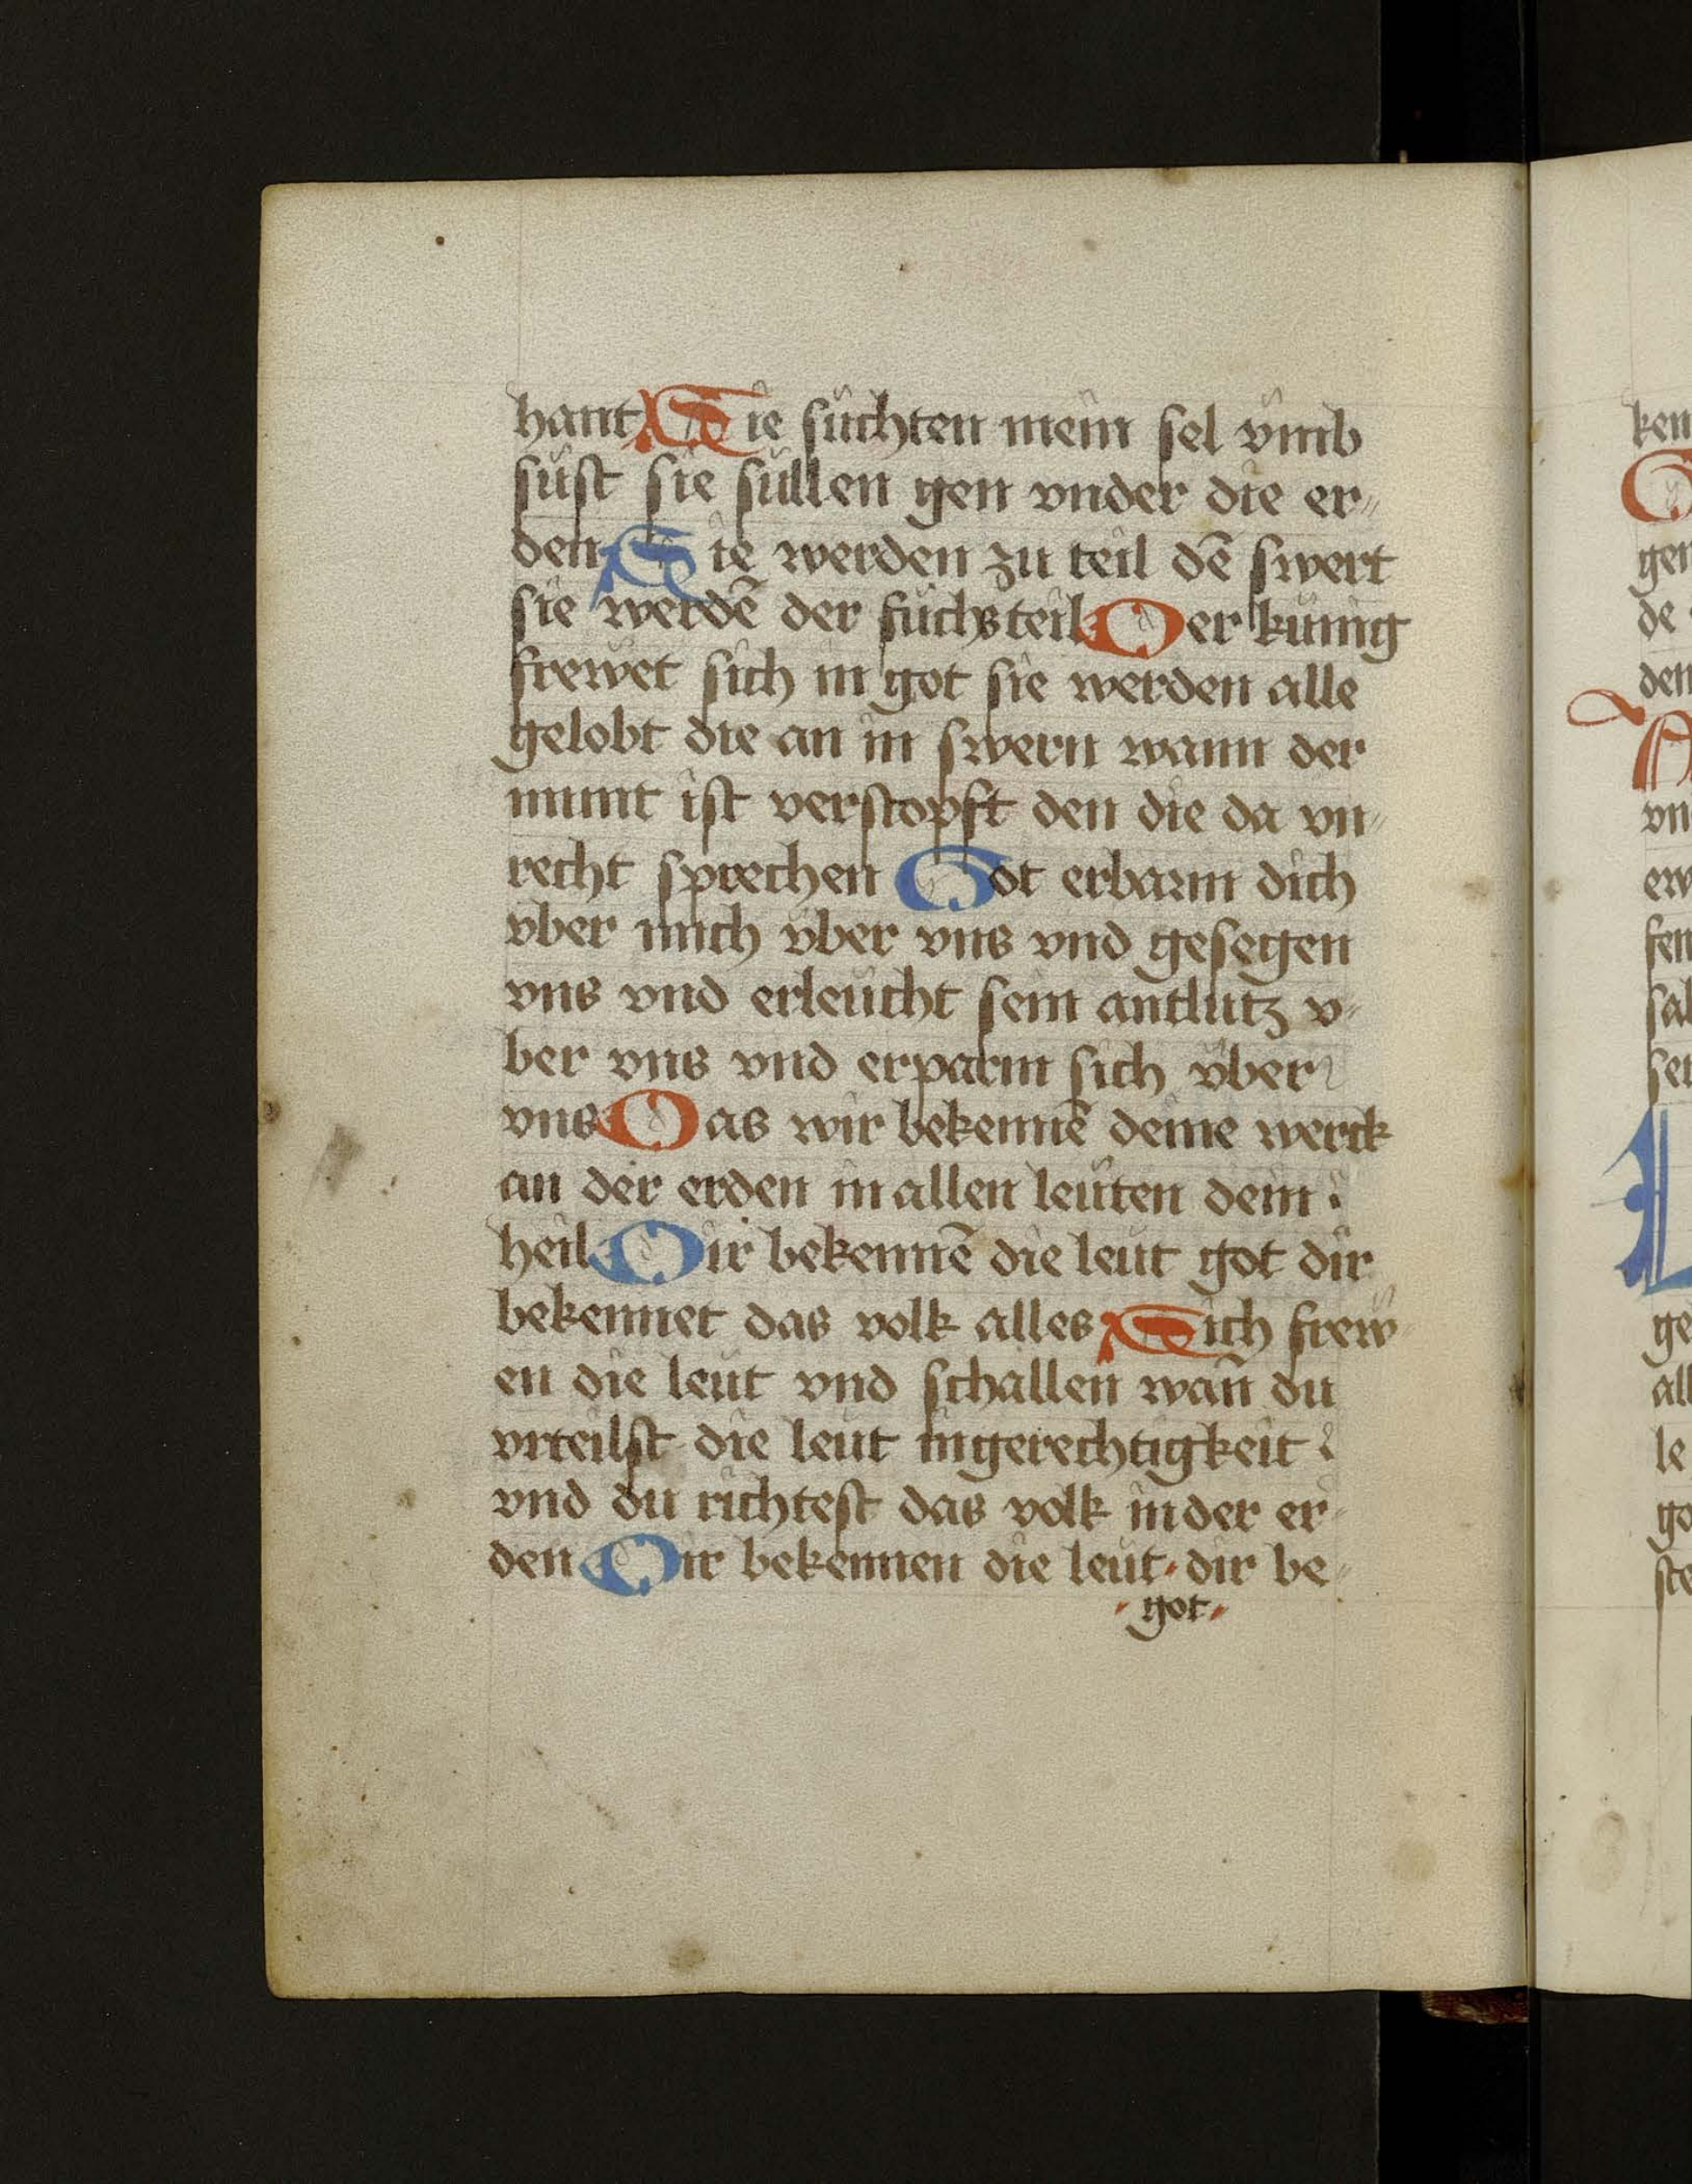 hant Sie suchten mein sel vmb
sust sie sullen gen vnder die er„
den Sie werden zu teil dē swert
sie werdē der fuchs teil Der kunig
frewet sich in got sie werden alle
gelobt die an in swern wann der
munt ist verstopft den die da vn„
recht sprechen Got erbarm dich
vber mich vber vns vnd gesegen
vns vnd erleucht sein antlutz v-
ber vns vnd erparm sich vber
vns Das wir bekennē deine werck
an der erden in allen leuten dein
heil Dir bekennē die leut got dir
bekennet das volk alles Sich frew-
en die leut vnd schallen wan̄ du
vrteilst die leut in gerechtigkeit
vnd du richtest das volk in der er-
den Dir bekennen die leut dir be-
got
ken
gen
de
den
vn
erw
fen
sal
sei
L
ge
all
le
go
ste